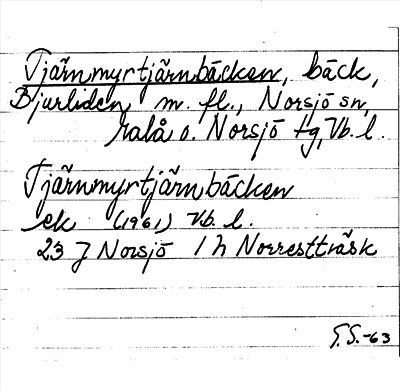 Tjärnmyrtjärnbäcken, bäck,
Bjurliden m. fl., Norsjö sn,
Malå o. Norsjö tg, Vb. l.
Tjärnmyrtjärnbäcken
ek (1961) Vb. l.
23 J Norsjö 1 h Norresttväsk
G.S.-63